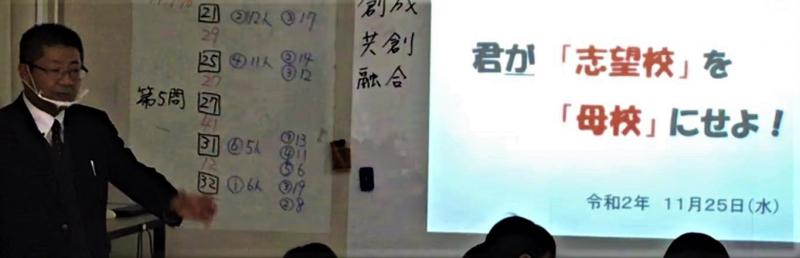 21 ②12人 ③17
29
25 ④11人 ②14
③12
27
第5問 27
41
31 ⑥5人 ③13
④11
12 ⑤6
32 ①6人 ③19
②8
創成
共創
融合
君が「志望校」を
「母校」にせよ！
令和2年 11月25日(水)